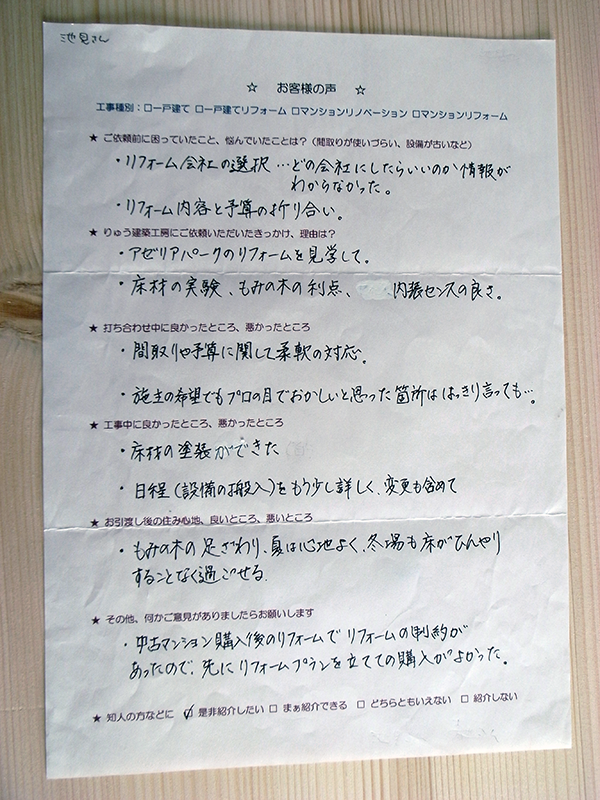 池見さん
☆ お客様の声 ☆
工事種別：□一戸建て □一戸建てリフォーム □マンションリノベーション □マンションリフォーム
★ ご依頼前に困っていたこと、悩んでいたことは？（間取りが使いづらい、設備が古いなど）
・リフォーム会社の選択 …どの会社にしたらいいのか情報が
わからなかった。
・リフォーム内容と予算の折り合い。
★ りゅう建築工房にご依頼いただいたきっかけ、理由は？
・アゼリアパークのリフォームを見学して。
・床材の実験、もみの木の利点、 内装センスの良さ。
★ 打ち合わせ中に良かったところ、悪かったところ
・間取りや予算に関して柔軟の対応。
・施主の希望でもプロの目でおかしいと思った箇所ははっきり言っても…。
★ 工事中に良かったところ、悪かったところ
・床材の塗装ができた
・日程（設備の搬入）をもう少し詳しく、変更も含めて
★ お引渡し後の住み心地、良いところ、悪いところ
・もみの木の足ざわり、夏は心地よく、冬場も床がひんやり
することなく過ごせる。
★ その他、何かご意見がありましたらお願いします
・中古マンション購入後のリフォームでリフォームの制約が
あったので、先にリフォームプランを立てての購入がよかった。
★ 知人の方などに ☑ 是非紹介したい □ まぁ紹介できる □ どちらともいえない □ 紹介しない